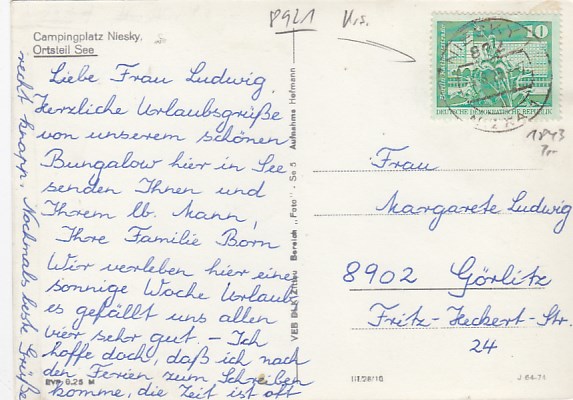 8921
Campingplatz Niesky,
Ortsteil See
Liebe Frau Ludwig,
Herzliche Urlaubsgrüße
von unserem schönen
Bungalow hier in See
senden Ihnen und
Ihrem lb. Mann,
Ihre Familie Born
Wir verleben hier eine
sonnige Woche Urlaub
es gefällt uns allen
vier sehr gut. – Ich
hoffe doch, daß ich nach
den Ferien zum Schreiben
komme, die Zeit ist oft
recht knapp. Nochmals beste Grüße
EVP 0,25 M
VEB Bild Bereich „Foto" · Se 5 Aufnahme Hofmann
10
DEUTSCHE DEMOKRATISCHE REPUBLIK
NIESKY
892
1843
Frau
Margarete Ludwig
8902 Görlitz
Fritz-Heckert-Str.
24
III/28/10
J 64-71